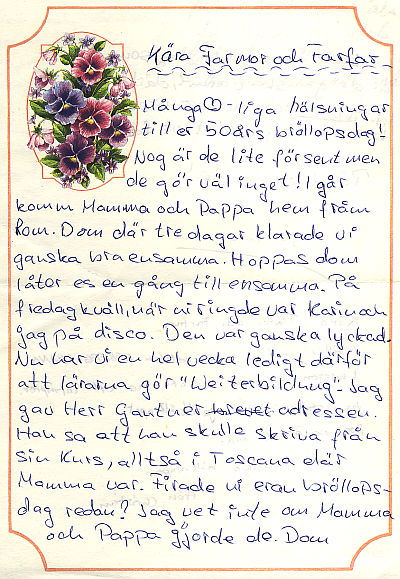 Kära Farmor och Farfar
Många ♡-liga hälsningar
till er 50års bröllopsdag!
Nog är de lite för sent men
de gör väl inget! Igår
komm Mamma och Pappa hem från
Rom. Dom där tre dagar klarade vi
ganska bra ensamma. Hoppas dom
låter es en gång till ensamma. På
fredagkväll, när ni ringde var Karin och
jag på disco. Den var ganska lyckad.
Nu har vi en hel vecka ledigt därför
att lärarna gör "Weiterbildung". Jag
gav Herr Gantner brevet adressen.
Han sa att han skulle skriva från
sin Kurs, alltså i Toscana där
Mamma var. Firade ni eran bröllops-
dag redan? Jag vet inte om Mamma
och Pappa gjorde de. Dom